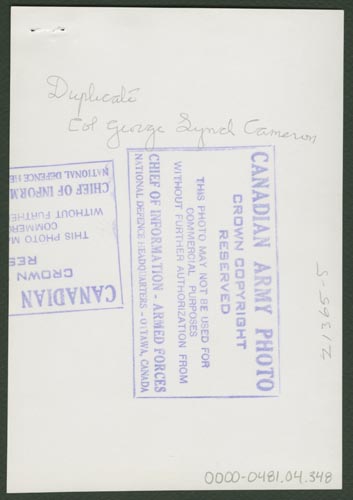 Duplicate
Col George Lynch Cameron
CANADIAN ARMY PHOTO
CROWN COPYRIGHT
RESERVED
THIS PHOTO MAY NOT BE USED FOR
COMMERCIAL PURPOSES
WITHOUT FURTHER AUTHORIZATION FROM
CHIEF OF INFORMATION - ARMED FORCES
NATIONAL DEFENCE HEADQUARTERS - OTTAWA, CANADA
CANADIAN
CROWN
RES
THIS PHOTO M
COMMERC
WITHOUT FURTHE
CHIEF OF INFORM
NATIONAL DEFENCE HE
Z1365-5
0000-0481.04.348